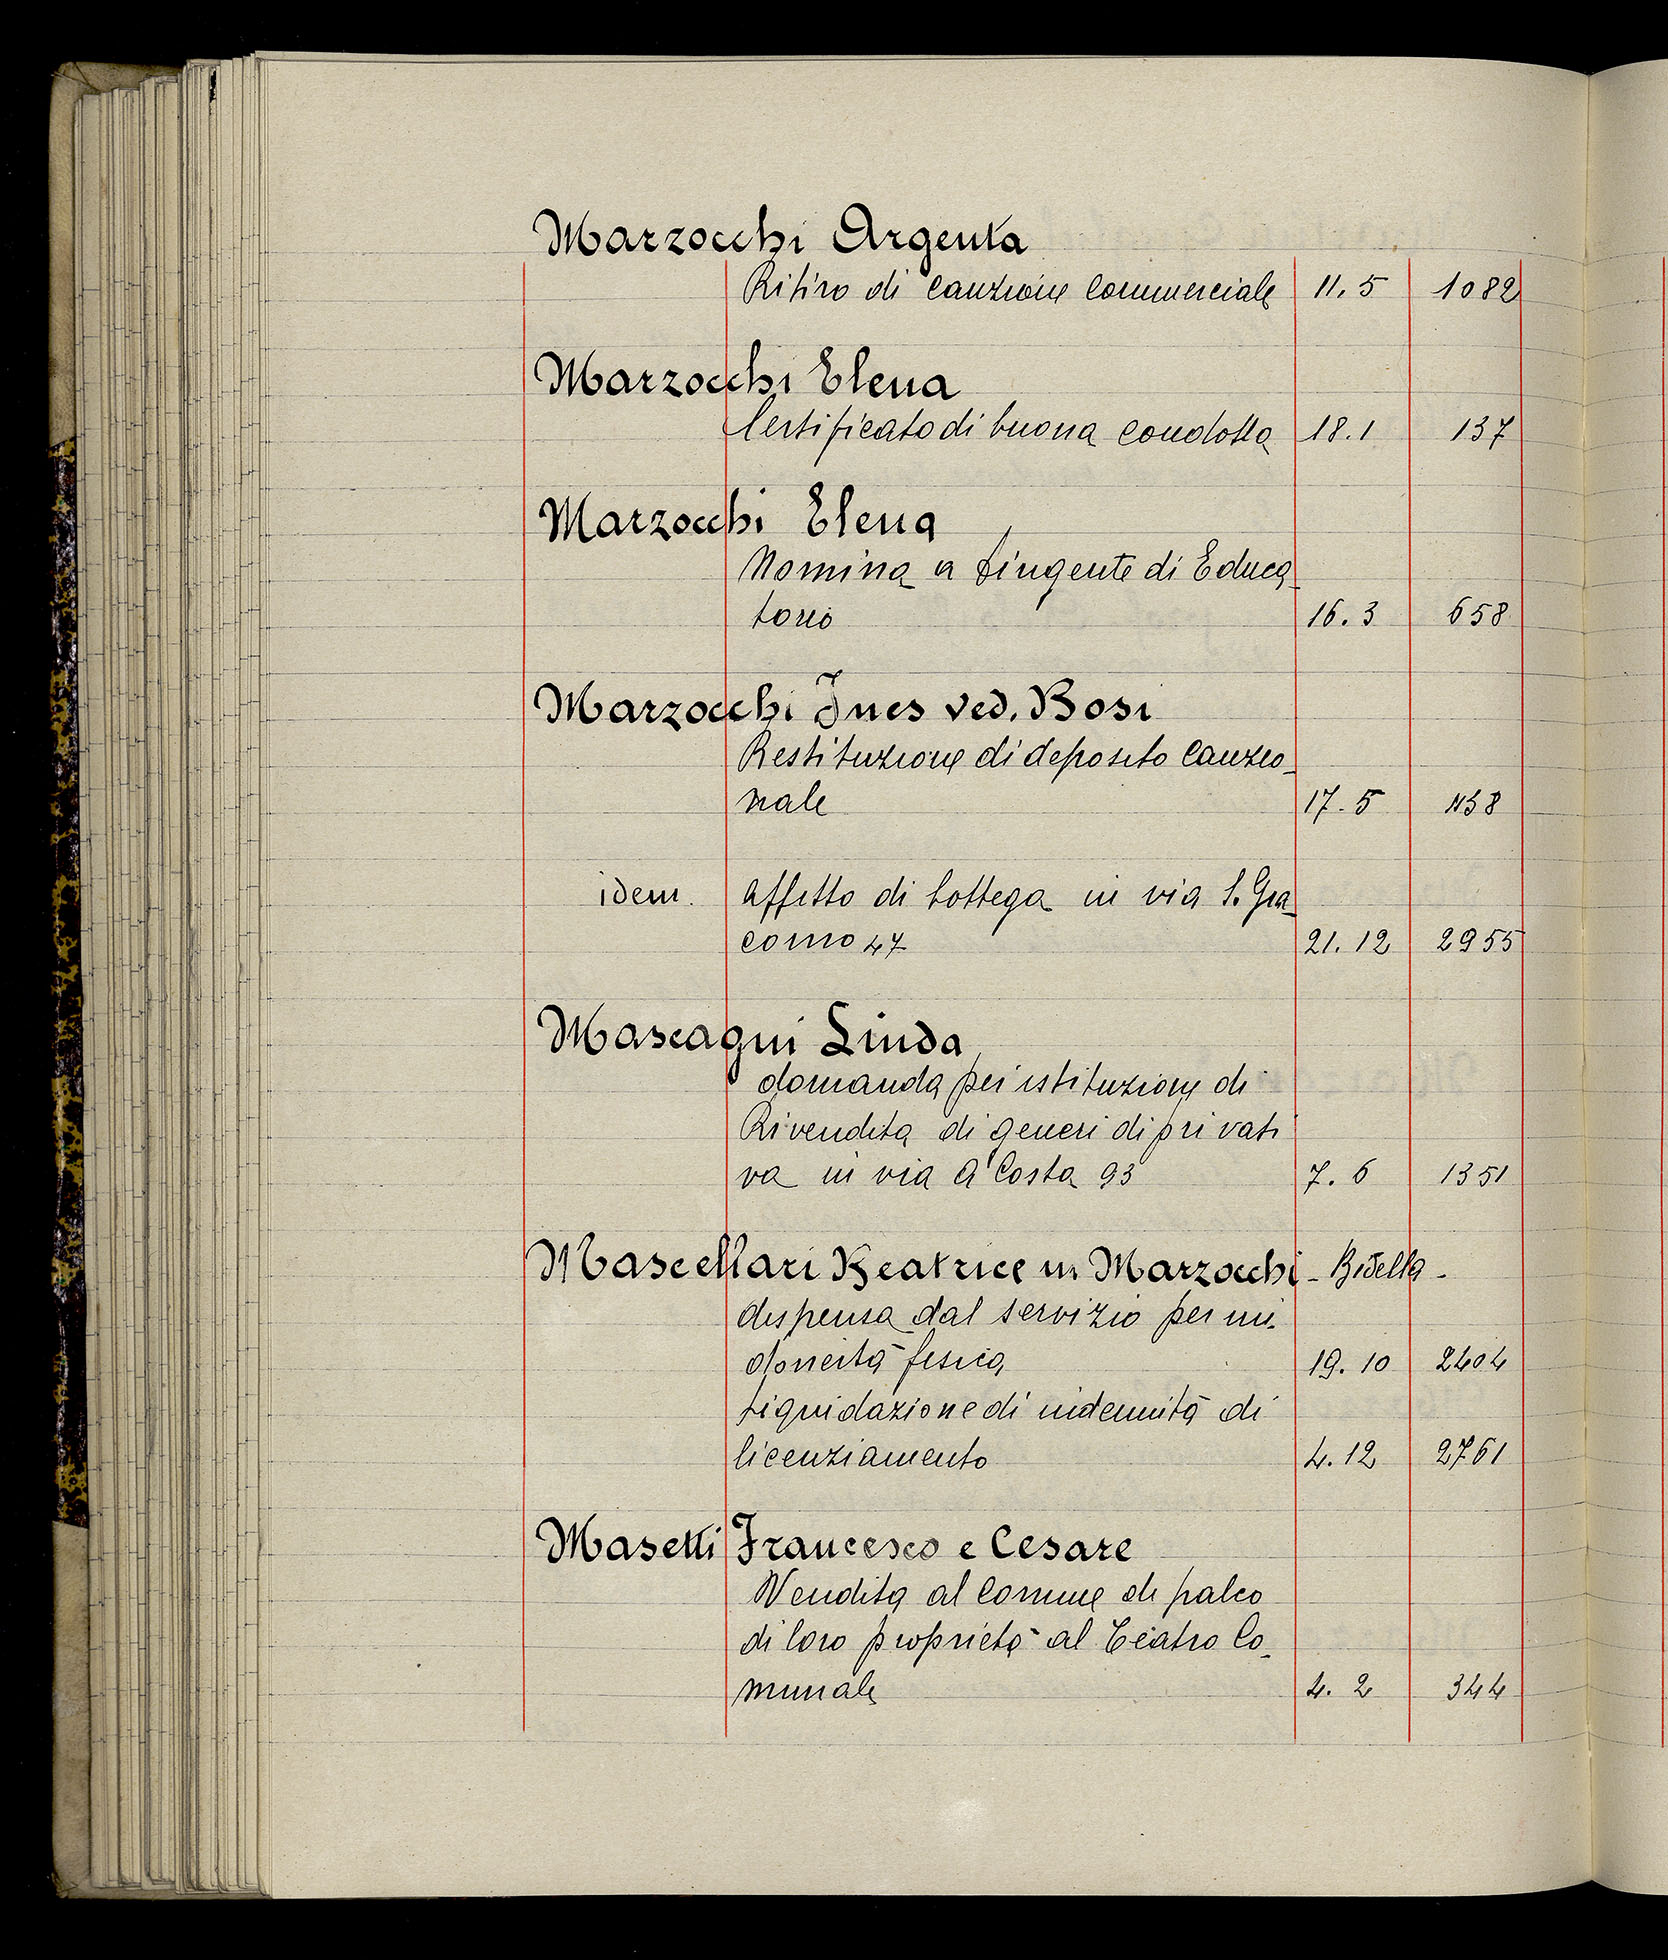 Marzocchi Argenta
Ritiro di cauzione commerciale 11.5 1082
Marzocchi Elena
Certificato di buona condotta 18.1 137
Marzocchi Elena
Nomina a Dirigente di Educa
torio 16.3 658
Marzocchi Ines ved. Bosi
Restituzione di deposito cauzio-
nale 17.5 1158
idem. Affitto di bottega in via S. Gia
como 47 21.12 2955
Mascagni Linda
domanda per istituzione di
Rivendita di generi di privati
va in via A Costa 93 7.6 1351
Mascellari Beatrice in Marzocchi - Bidella -
dispensa dal servizio per ini-
doneità fisica 19.10 2404
liquidazione di indennità di
licenziamento 4.12 2761
Masetti Francesco e Cesare
Vendita al Comune di palco
di loro proprietà al Teatro Co-
munale 4.2 344